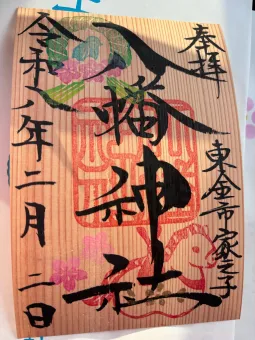 奉拝
東金市家之子
八幡神社
令和八年二月二日